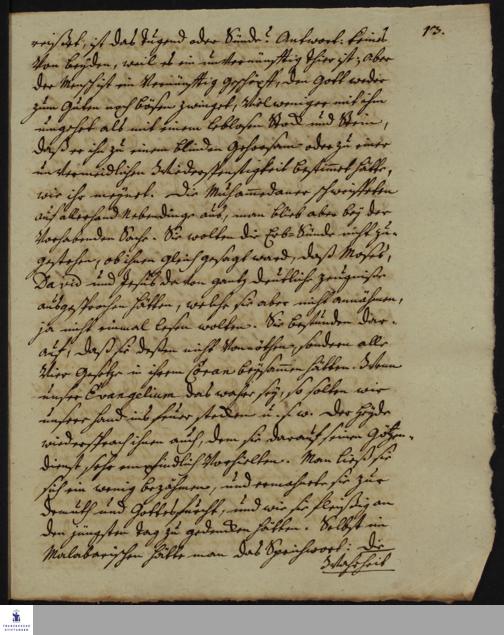 13.
reißet, ist das Tugend oder Sünde? Antwort: keines
von beyden, weil es ein unvernünfftig Thier ist; Aber
der Mensch ist ein Vernünfftig Geschöpff, den Gott weder
zum Guten noch bösen zwinget, Viel weniger mit ihm
umgehet als mit einem leblosen Stock und Stein,
daß er ihn zu einem blinden Gehorsam oder zu einer
unvermeidlichen Wiederspenstigkeit bestimmet hätte,
wie ihr meynet. Die Muhammedaner schweiffeten
auf allerhand Nebendinge aus, man blieb aber bey der
Vorhabenden Sache. Sie wolten die Erb-Sünde nicht zu-
gestehen, ob ihnen gleich gesagt ward, daß Moses,
David und Jesus davon gantz deutliche Zeugniße
ausgesprochen hätten, welche sie aber nicht annähmen,
ja nicht einmal lesen wolten. Sie bestunden dar-
auf, daß sie deßen nicht Vonnöthen, sondern alle
Vier Gesetze in ihrem Coran beysammen hätten. Wenn
unser Evangelium das wahre sey, so solten wir
unsere Hand ins Feuer stecken u. s. w. Der Heyde
wiedersprach ihnen auch, dem sie darauf seinen Götzen-
dienst sehr empfindlich Vorhielten. Man ließ sie
sich ein wenig bezähmen, und ermahnte sie zur
Demuth und Gottesfurcht, und wie sie fleißig an
den jüngsten Tag zu gedencken hätten. Selbst im
Malabarischen hätte man das Sprichwort: die
Wahrheit
FRANCKESCHE STIFTUNGEN